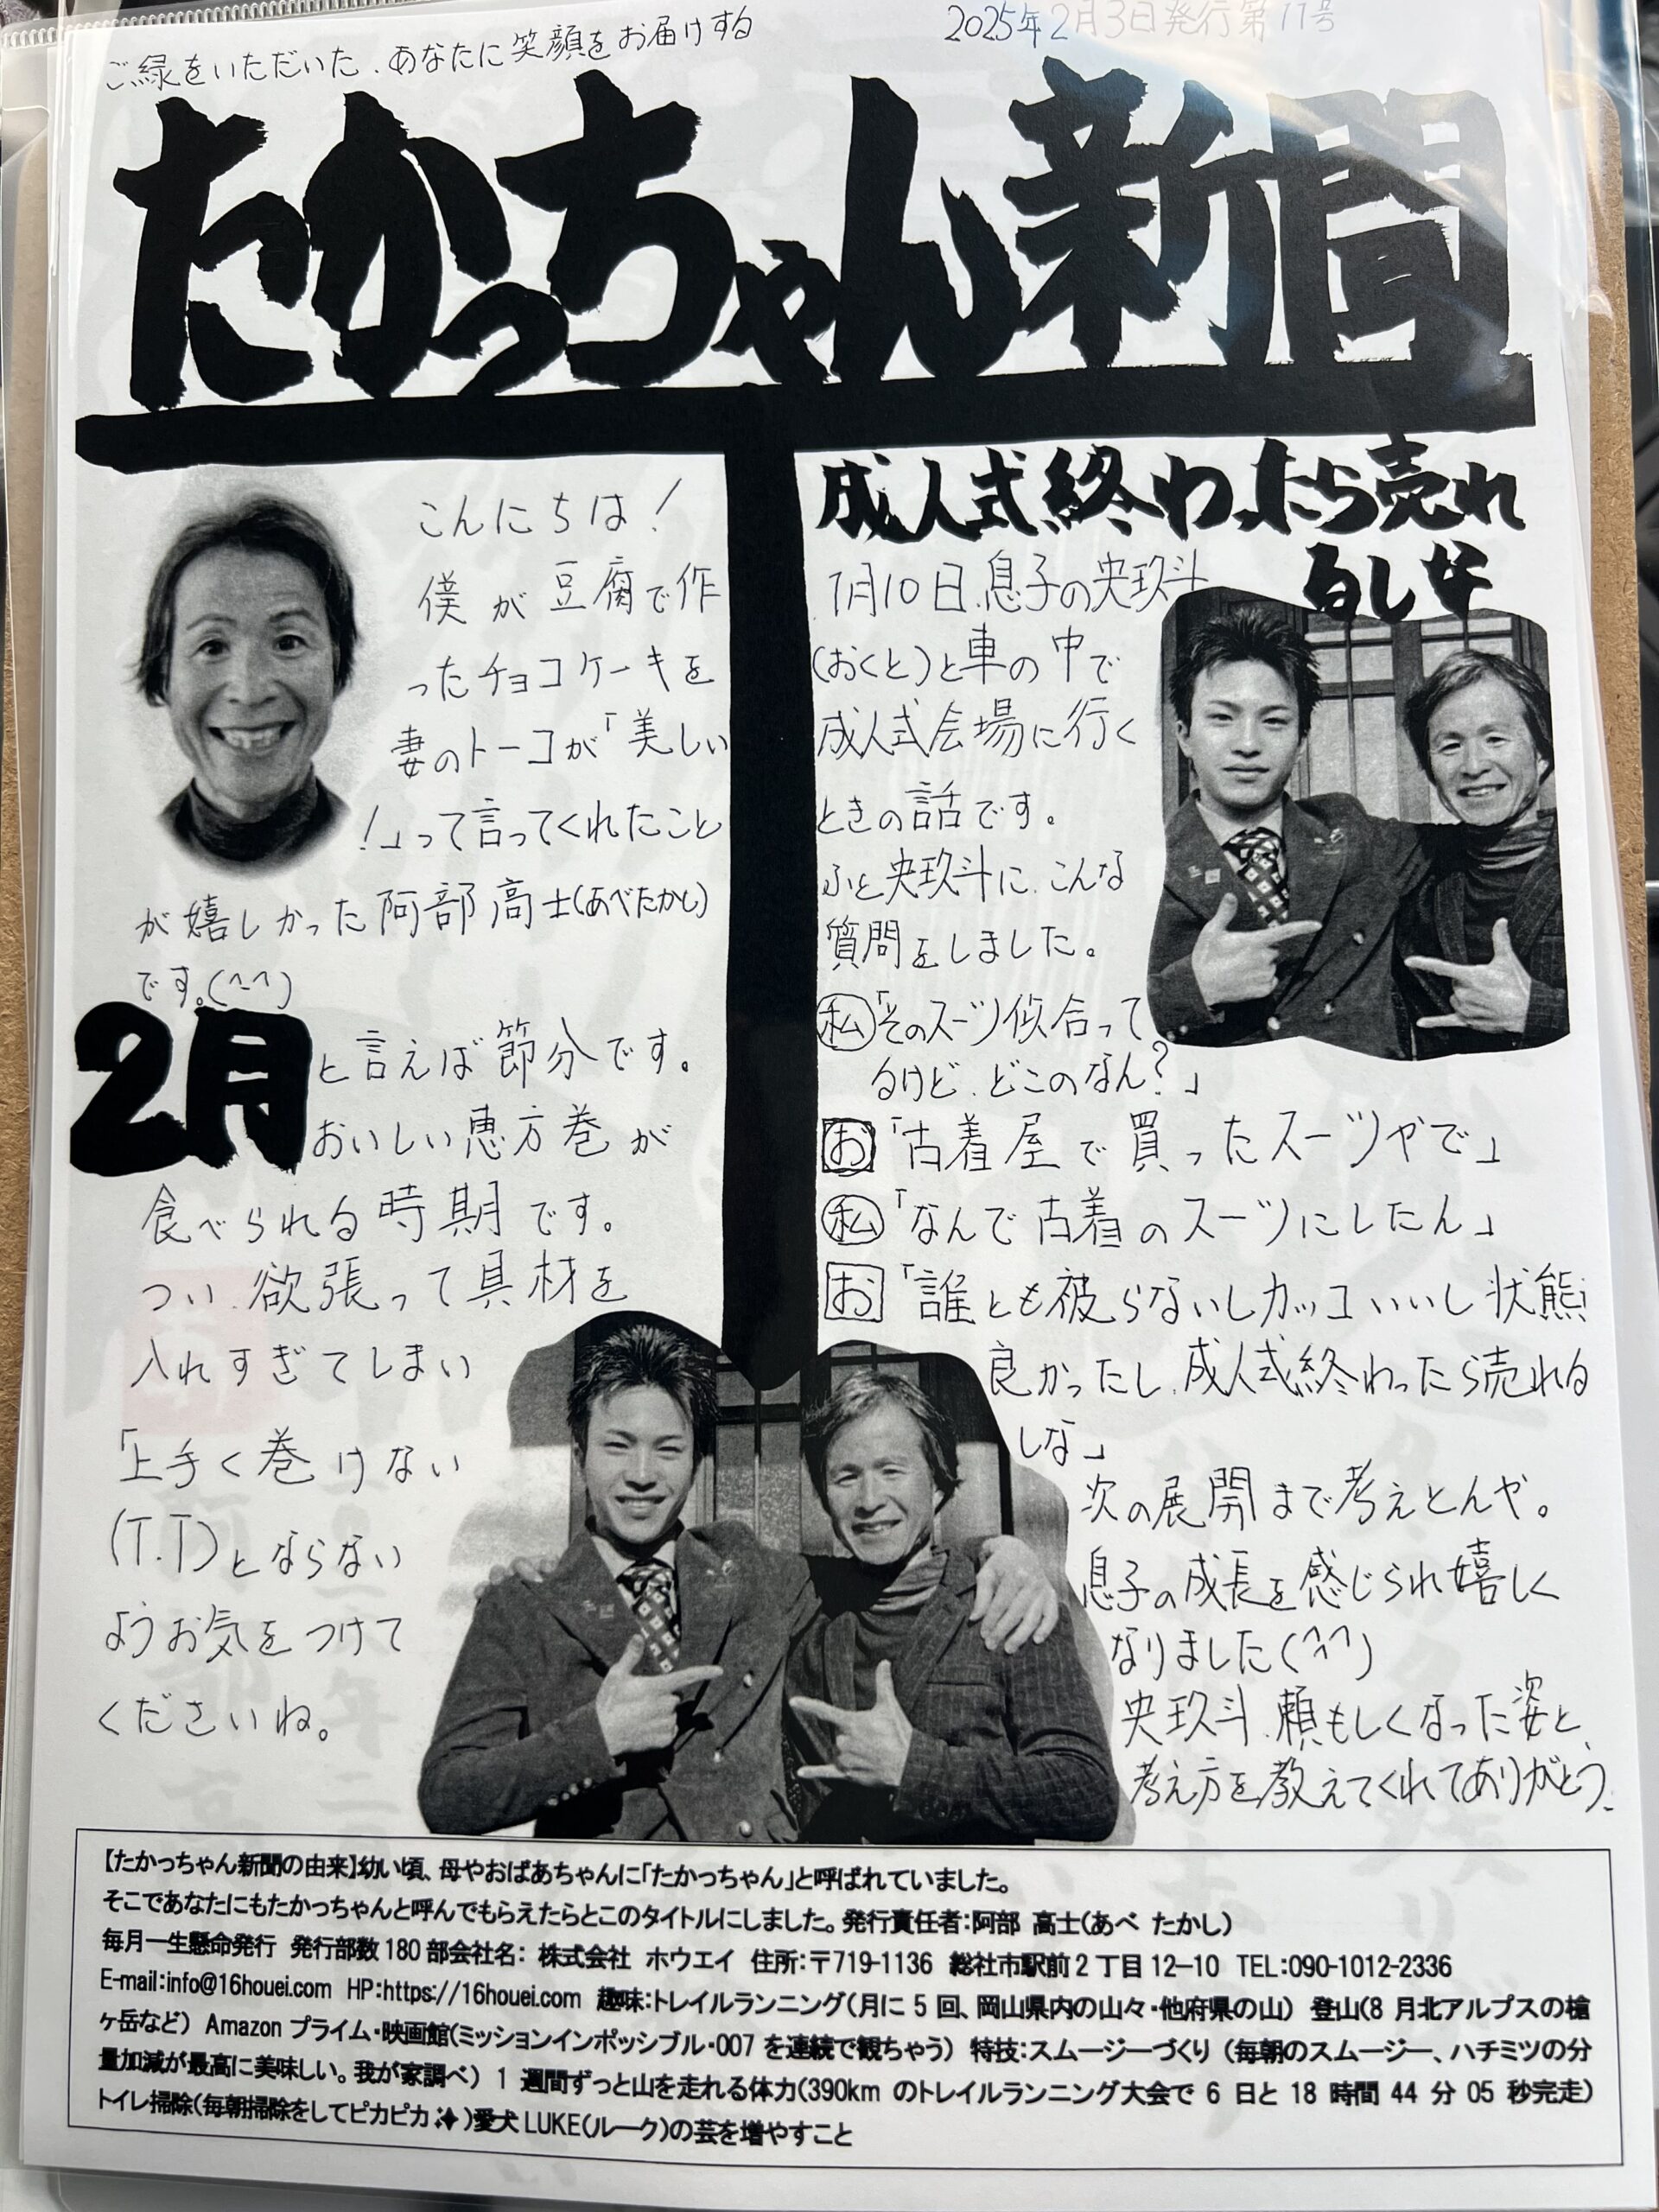 ご縁をいただいた、あなたに笑顔をお届けする
2025年2月3日発行第11号
たかっちゃん新聞
こんにちは!
僕が豆腐で作
ったチョコケーキを
妻のトーコが「美しい
!」って言ってくれたこと
が嬉しかった阿部高士(あべたかし)
です。(^-^)
2月と言えば節分です。
おいしい恵方巻が
食べられる時期です。
つい、欲張って具材を
入れすぎてしまい
「上手く巻けない
(T.T)とならない
ようお気をつけて
くださいね。
成人式終わったら売れ
るしな
1月10日、息子の央玖斗
(おくと)と車の中で
成人式会場に行く
ときの話です。
ふと央玖斗に、こんな
質問をしました。
私「そのスーツ似合って
るけど、どこのなん?」
お「古着屋で買ったスーツやで」
私「なんで古着のスーツにしたん」
お「誰とも被らないしカッコいいし状態
良かったし、成人式終わったら売れる
しな」
次の展開まで考えとんや。
息子の成長を感じられ嬉しく
なりました(^^)
央玖斗、頼もしくなった姿と、
考え方を教えてくれてありがとう。
【たかっちゃん新聞の由来】幼い頃、母やおばあちゃんに「たかっちゃん」と呼ばれていました。
そこであなたにもたかっちゃんと呼んでもらえたらとこのタイトルにしました。発行責任者:阿部 高士(あべ たかし)
毎月一生懸命発行 発行部数180部会社名: 株式会社 ホウエイ 住所:〒719-1136 総社市駅前2丁目12-10 TEL:090-1012-2336
E-mail:info@16houei.com HP:https://16houei.com 趣味:トレイルランニング(月に5回、岡山県内の山々・他府県の山) 登山(8月北アルプスの槍
ヶ岳など) Amazonプライム・映画館(ミッションインポッシブル・007を連続で観ちゃう) 特技:スムージーづくり(毎朝のスムージー、ハチミツの分
量加減が最高に美味しい。我が家調べ) 1週間ずっと山を走れる体力(390kmのトレイルランニング大会で6日と18時間44分05秒完走)
トイレ掃除(毎朝掃除をしてピカピカ✨)愛犬LUKE(ルーク)の芸を増やすこと